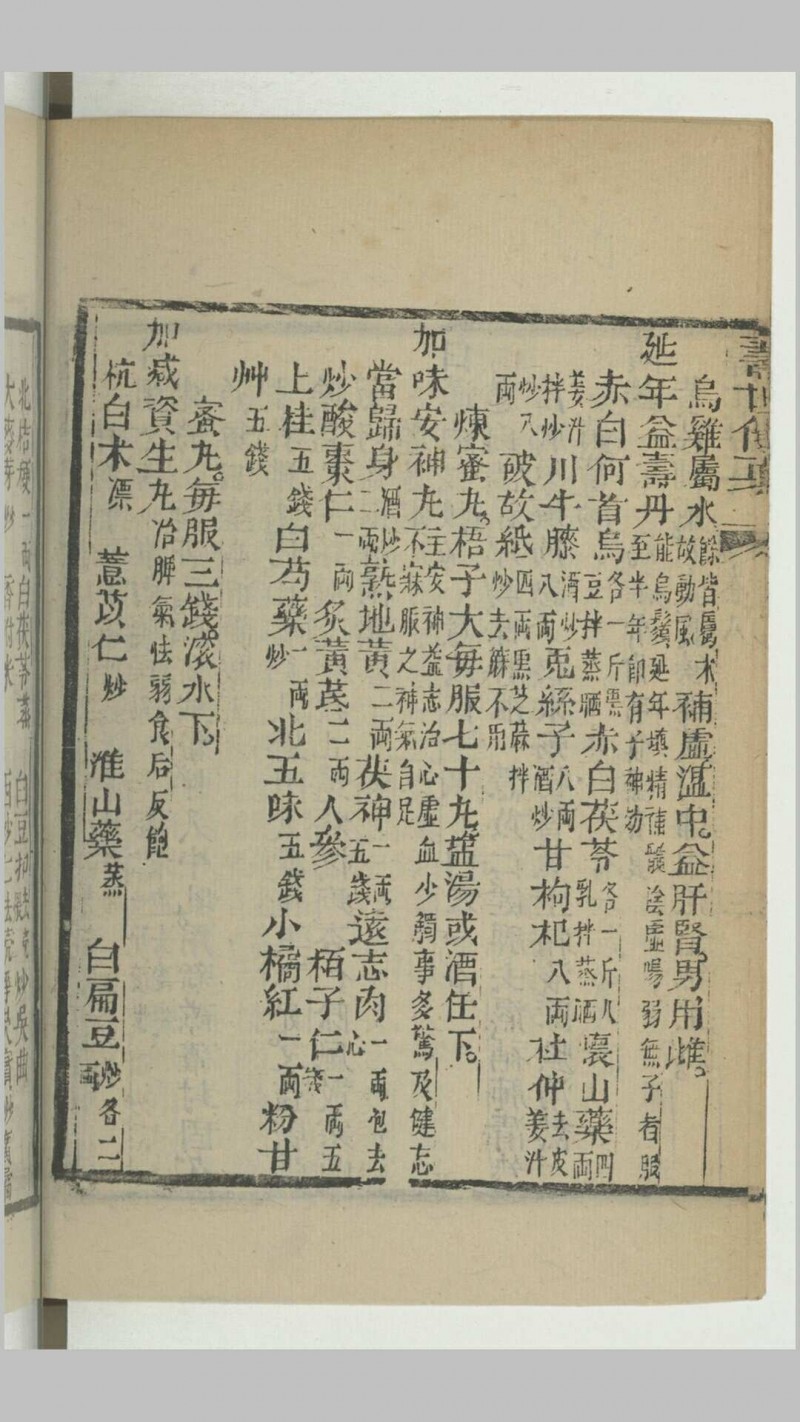 壽世傳真
烏雞屬水餘皆屬木故動風補虛溫中。益肝腎。男用雌。
延年益壽丹能烏鬚延年填精補髓陰虛陽弱無子者服至半年即有子神効
赤白何首烏各一斤黑豆拌蒸晒赤白茯苓各一斤人乳拌蒸晒裏山藥四兩
姜汁拌炒川牛膝酒炒八兩兎絲子八兩酒炒甘枸杞八兩杜仲去皮姜汁
炒八兩破故紙四兩黑芝蔴拌炒去蔴不用
煉蜜丸。梧子大每服七十丸。盐湯或酒任下。
加味安神丸主安神益志治心虛血少觸事多驚及健忘不寐服之神氣自足
當歸身酒炒二兩熟地黃二兩茯神一兩五錢遠志肉一兩包去心
炒酸棗仁一兩炙黃芪二兩人參 栢子仁一兩五錢
上桂五錢白芍藥一兩炒北五味五錢小橘紅一兩粉甘
艸五錢
蜜丸。每服三錢。滾水下。
加减資生丸冶脾氣怯弱食后反飽
杭白术漂 薏苡仁炒 淮山藥蒸 白扁豆炒各二兩
北桔梗一兩白茯苓蒸 白豆扣